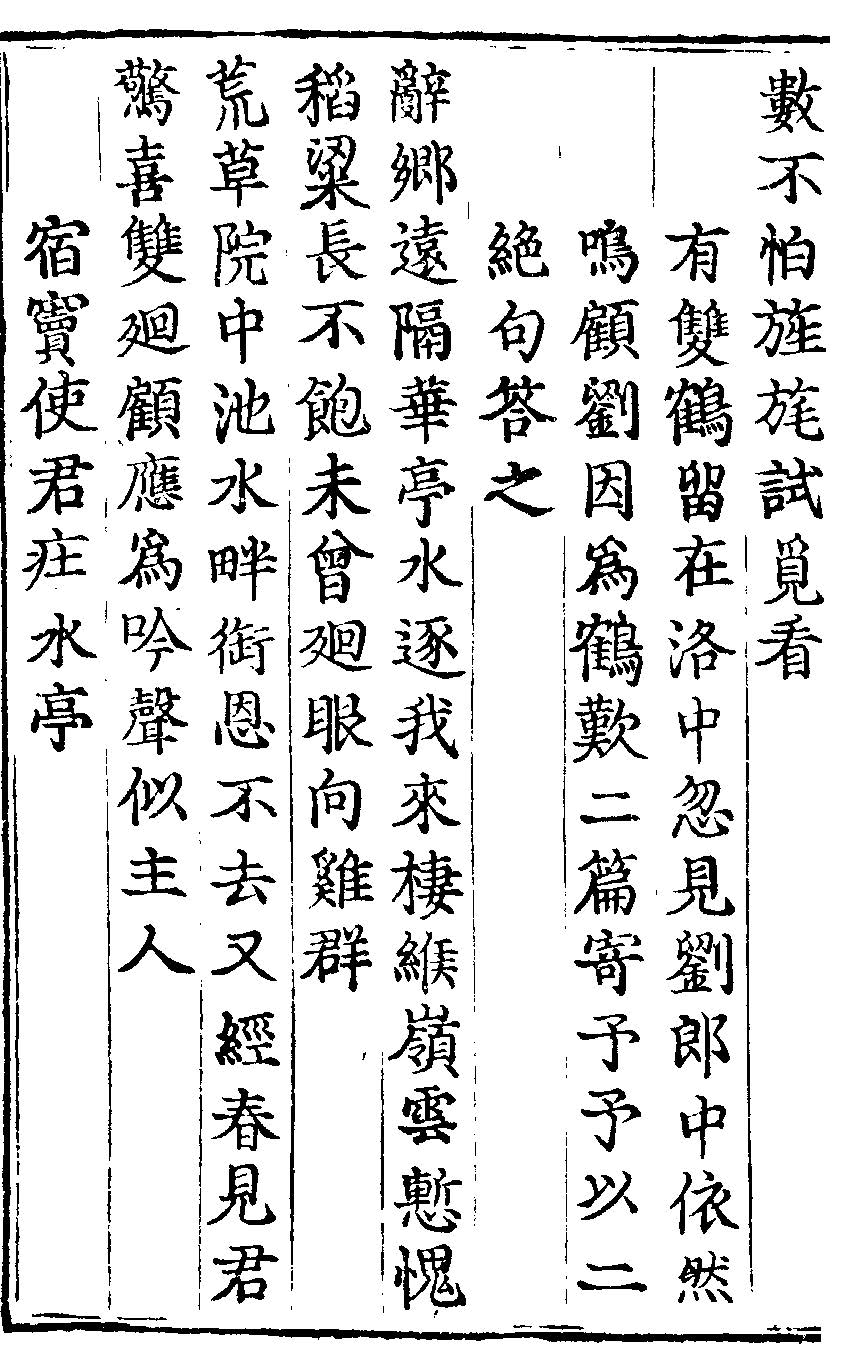 數不怕旌旄試覓看
有雙鶴留在洛中忽見劉郎中依然
鳴顧劉因爲鶴歎二篇寄予予以二
絕句答之
辭鄉遠隔華亭水逐我來棲緱嶺雲慙愧
稻粱長不飽未曾廻眼向雞群
荒草院中池水畔銜恩不去又經春見君
驚喜雙廻顧應爲吟聲似主人
宿竇使君庄水亭